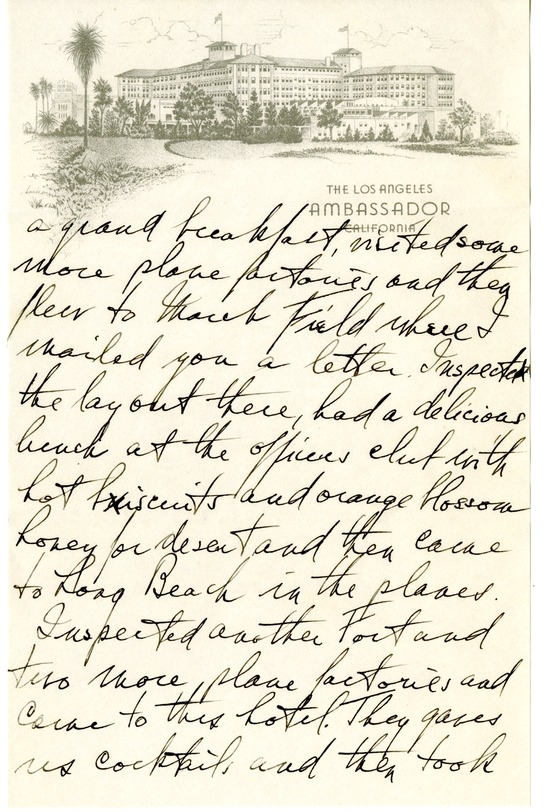 THE LOS ANGELES
AMBASSADOR
CALIFORNIA
a grand breakfast, visited some
more plane factories and then
flew to March Field where I
mailed you a letter. Inspected
the layout there, had a delicious
lunch at the officers club with
hot biscuits and orange blossom
honey for desert and then came
to Long Beach in the planes.
Inspected another Fort and
two more plane factories and
came to this hotel. They gave
us cocktails and then took